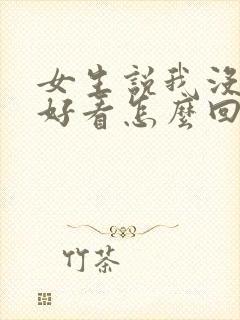 女生說我沒
好看怎麼回
竹茶